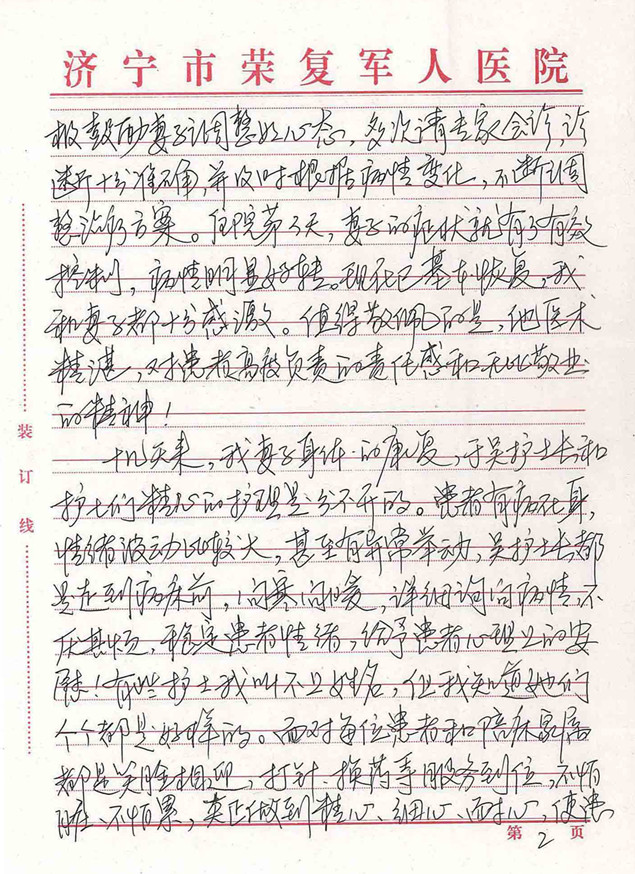 济宁市荣复军人医院
极鼓励妻子调整好心态，多次请专家会诊，诊
断十分准确，并及时根据病情变化，不断调
整治疗方案。住院第三天，妻子的症状就有了有效
控制，病情明显好转。现在已基本恢复，我
和妻子都十分感激。值得敬佩的是，他医术
精湛，对患者高度负责的责任感和无比敬业
的精神！
十几天来，我妻子身体的康复，于吴护士长和
护士们精心的护理是分不开的。患者有病在身，
情绪波动比较大，甚至有异常举动，吴护士长都
是走到病床前，问寒问暖，详细询问病情，不
厌其烦，稳定患者情绪，给予患者心理上的安
慰！有些护士我叫不上姓名，但我知道她们
个个都是好样的。面对每位患者和陪床家属
都是笑脸相迎，打针、换药等服务到位，不怕
脏、不怕累，真正做到精心、细心、耐心，使患
装订线
第2页